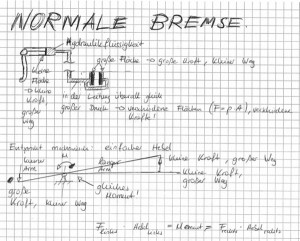 NORMALE BREMSE.
Hydraulikflüssigkeit
kleine Fläche → kleine Kraft, großer Weg
große Fläche → große Kraft, kleiner Weg
in der Leitung überall gleich
großer Druck → verschiedene Flächen (F=p·A), verschiedene
Kräfte!
Entspricht mechanisch: einfacher Hebel
kurzer Arm
M
langer Arm
kleine Kraft, großer Weg
kleine Kraft,
großer Weg
große
Kraft, kleiner Weg
gleiches
Moment!
F links · Hebel links = Moment = F rechts · Hebel rechts